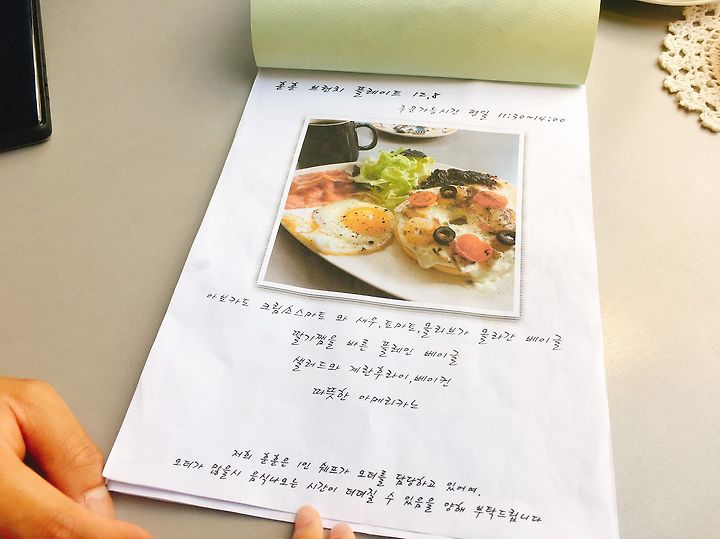 훈훈 브런치 플레이트 12,8
주문가능시간 평일 11:30~14:00
아보카도 크림소스마트 와 새우,토마토,올리브가 올라간 베이글
딸기잼을 바른 플레인 베이글
샐러드와 계란후라이,베이컨
따뜻한 아메리카노
저희 훈훈은 1인 쉐프가 오더를 담당하고 있어며,
오더가 많을시 음식나오는 시간이 더뎌질 수 있음을 양해 부탁드립니다